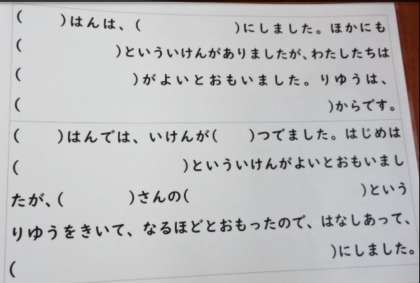 (　　)はんは、(　　　　　)にしました。ほかにも
(　　　　　)といういけんがありましたが、わたしたちは
(　　　　　　)がよいとおもいました。りゆうは、
(　　　　　　　　　　　　　　　　)からです。
(　　)はんでは、いけんが(　　)つでました。はじめは
(　　　　　　　　　)といういけんがよいとおもいまし
たが、(　　　　)さんの(　　　　　　　　　)という
りゆうをきいて、なるほどとおもったので、はなしあって、
(　　　　　　　　　　　　　　　　)にしました。